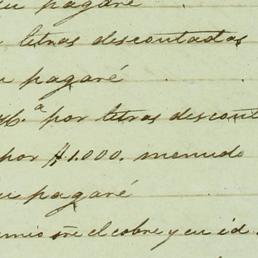 su pagaré
letras descontadas
su pagaré
H.ª por letras descont
por $1.000. menudo
su pagaré
emio sre el cobre y en id.